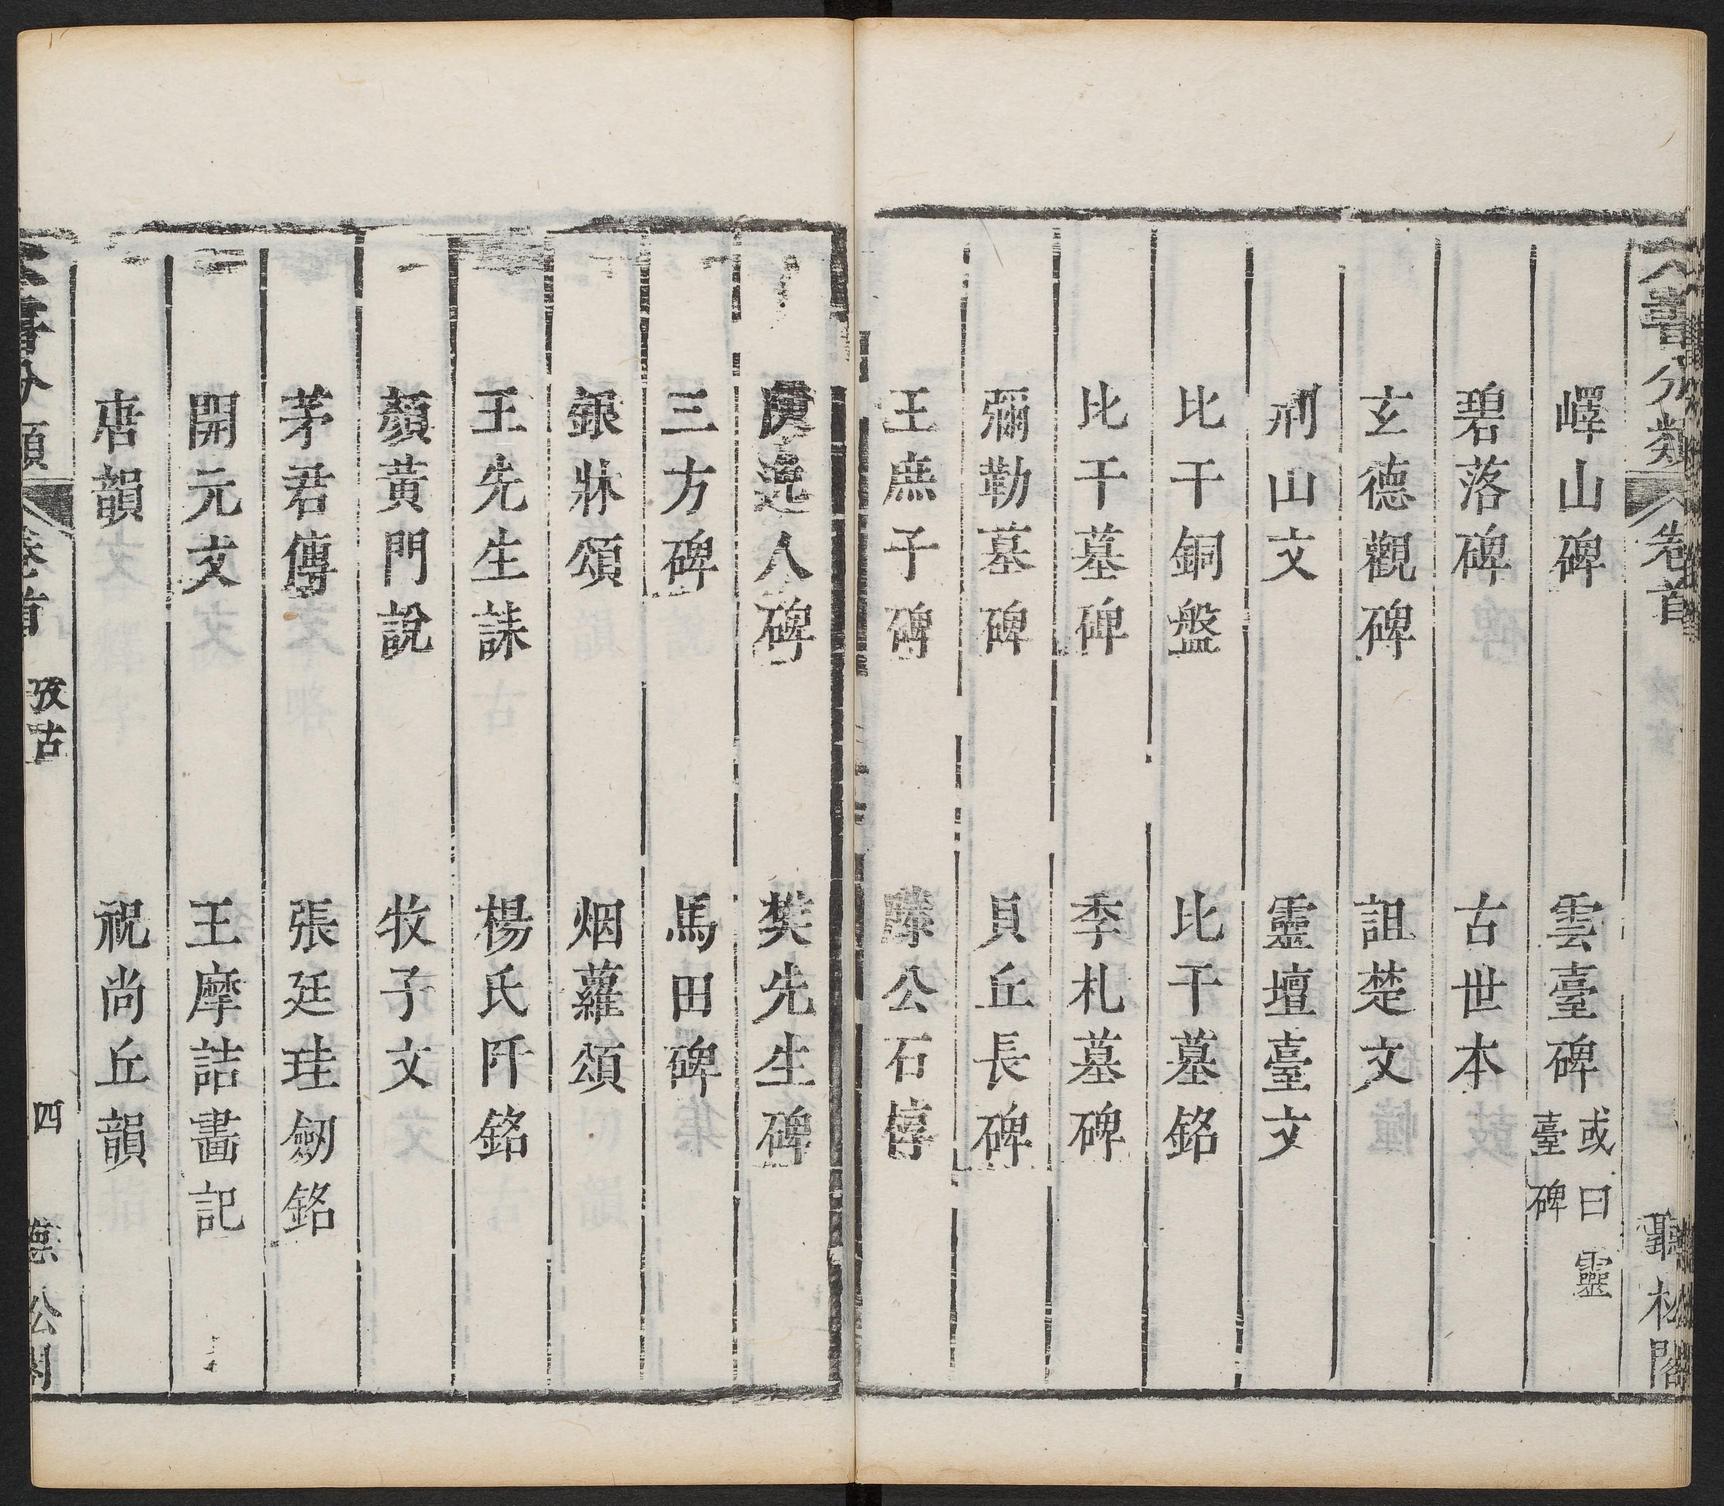 六書分類 卷首 聽松閣
嶧山碑 雲臺碑 或曰靈臺碑
碧落碑 古世本
玄德觀碑 詛楚文
荆山文 靈壇臺文
比干銅盤 比干墓銘
比干墓碑 季札墓碑
彌勒墓碑 貝丘長碑
王庶子碑 滕公石槨
庾先人碑 樊先生碑
三方碑 馬田碑
銀牀頌 烟蘿頌
王先生誄 楊氏阡銘
顏黃門說 牧子文
茅君傳 張廷珪劒銘
開元文 王摩詰畫記
唐韻 祝尚丘韻
六書分類 卷首 攷古 四 聽松閣